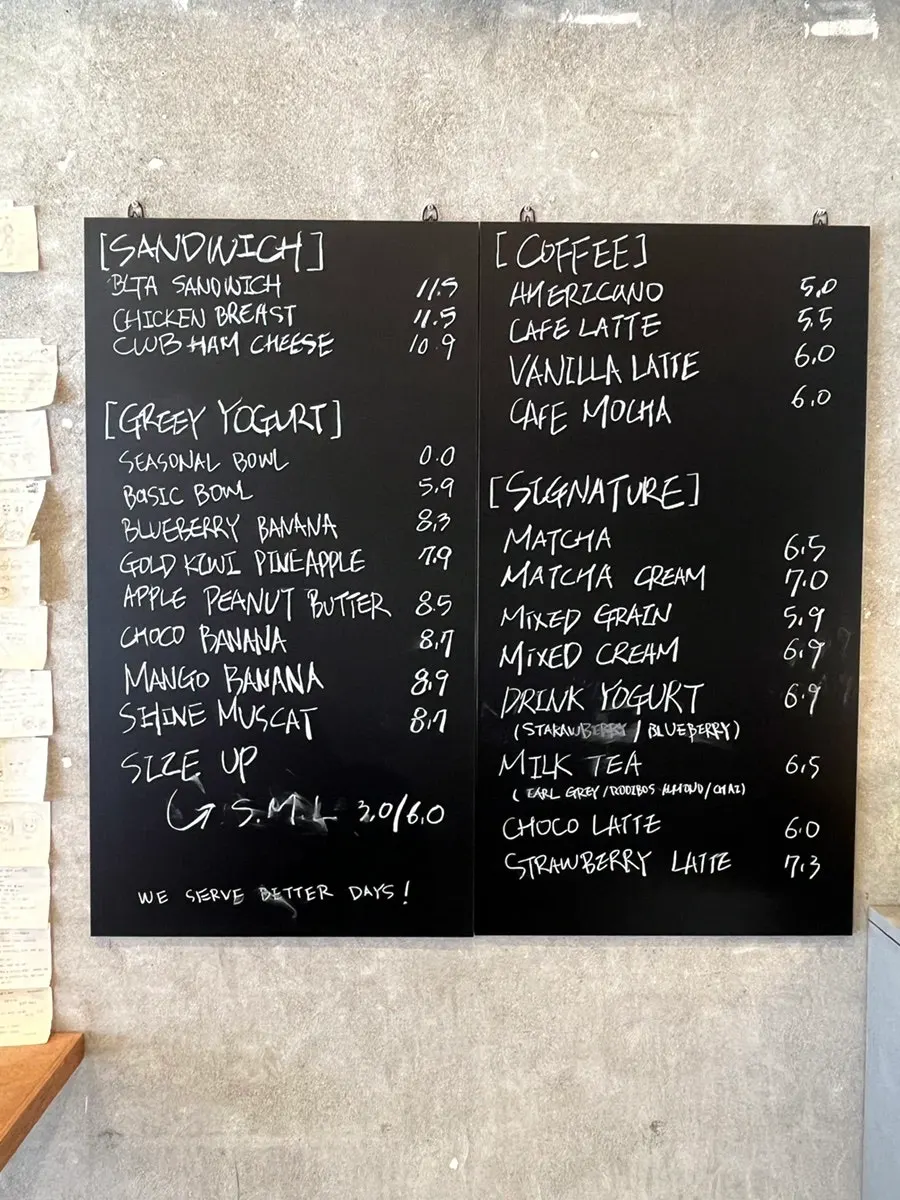 [SANDWICH]
BLTA SANDWICH 11.5
CHICKEN BREAST 11.5
CLUB HAM CHEESE 10.9
[GREEY YOGURT]
SEASONAL BOWL 0.0
BASIC BOWL 5.9
BLUEBERRY BANANA 8.3
GOLD KIWI PINEAPPLE 7.9
APPLE PEANUT BUTTER 8.5
CHOCO BANANA 8.7
MANGO BANANA 8.9
SHINE MUSCAT 8.7
SIZE UP
S.M.L 3.0/6.0
WE SERVE BETTER DAYS!
[COFFEE]
AMERICANO 5.0
CAFE LATTE 5.5
VANILLA LATTE 6.0
CAFE MOCHA 6.0
[SIGNATURE]
MATCHA 6.5
MATCHA CREAM 7.0
MIXED GRAIN 5.9
MIXED CREAM 6.9
DRINK YOGURT 6.9
(STARAWBERRY / BLUEBERRY)
MILK TEA 6.5
(EARL GREY/ROOIBOS ALMOND/CHAI)
CHOCO LATTE 6.0
STRAWBERRY LATTE 7.3